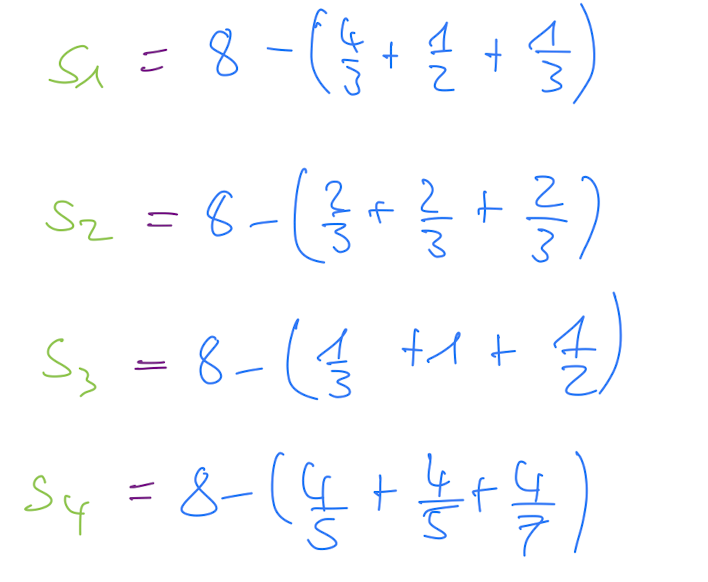 S1 = 8 - (4/3 + 1/2 + 1/3)
S2 = 8 - (2/3 + 2/3 + 2/3)
S3 = 8 - (1/3 + 1 + 1/2)
S4 = 8 - (4/5 + 4/5 + 4/7)